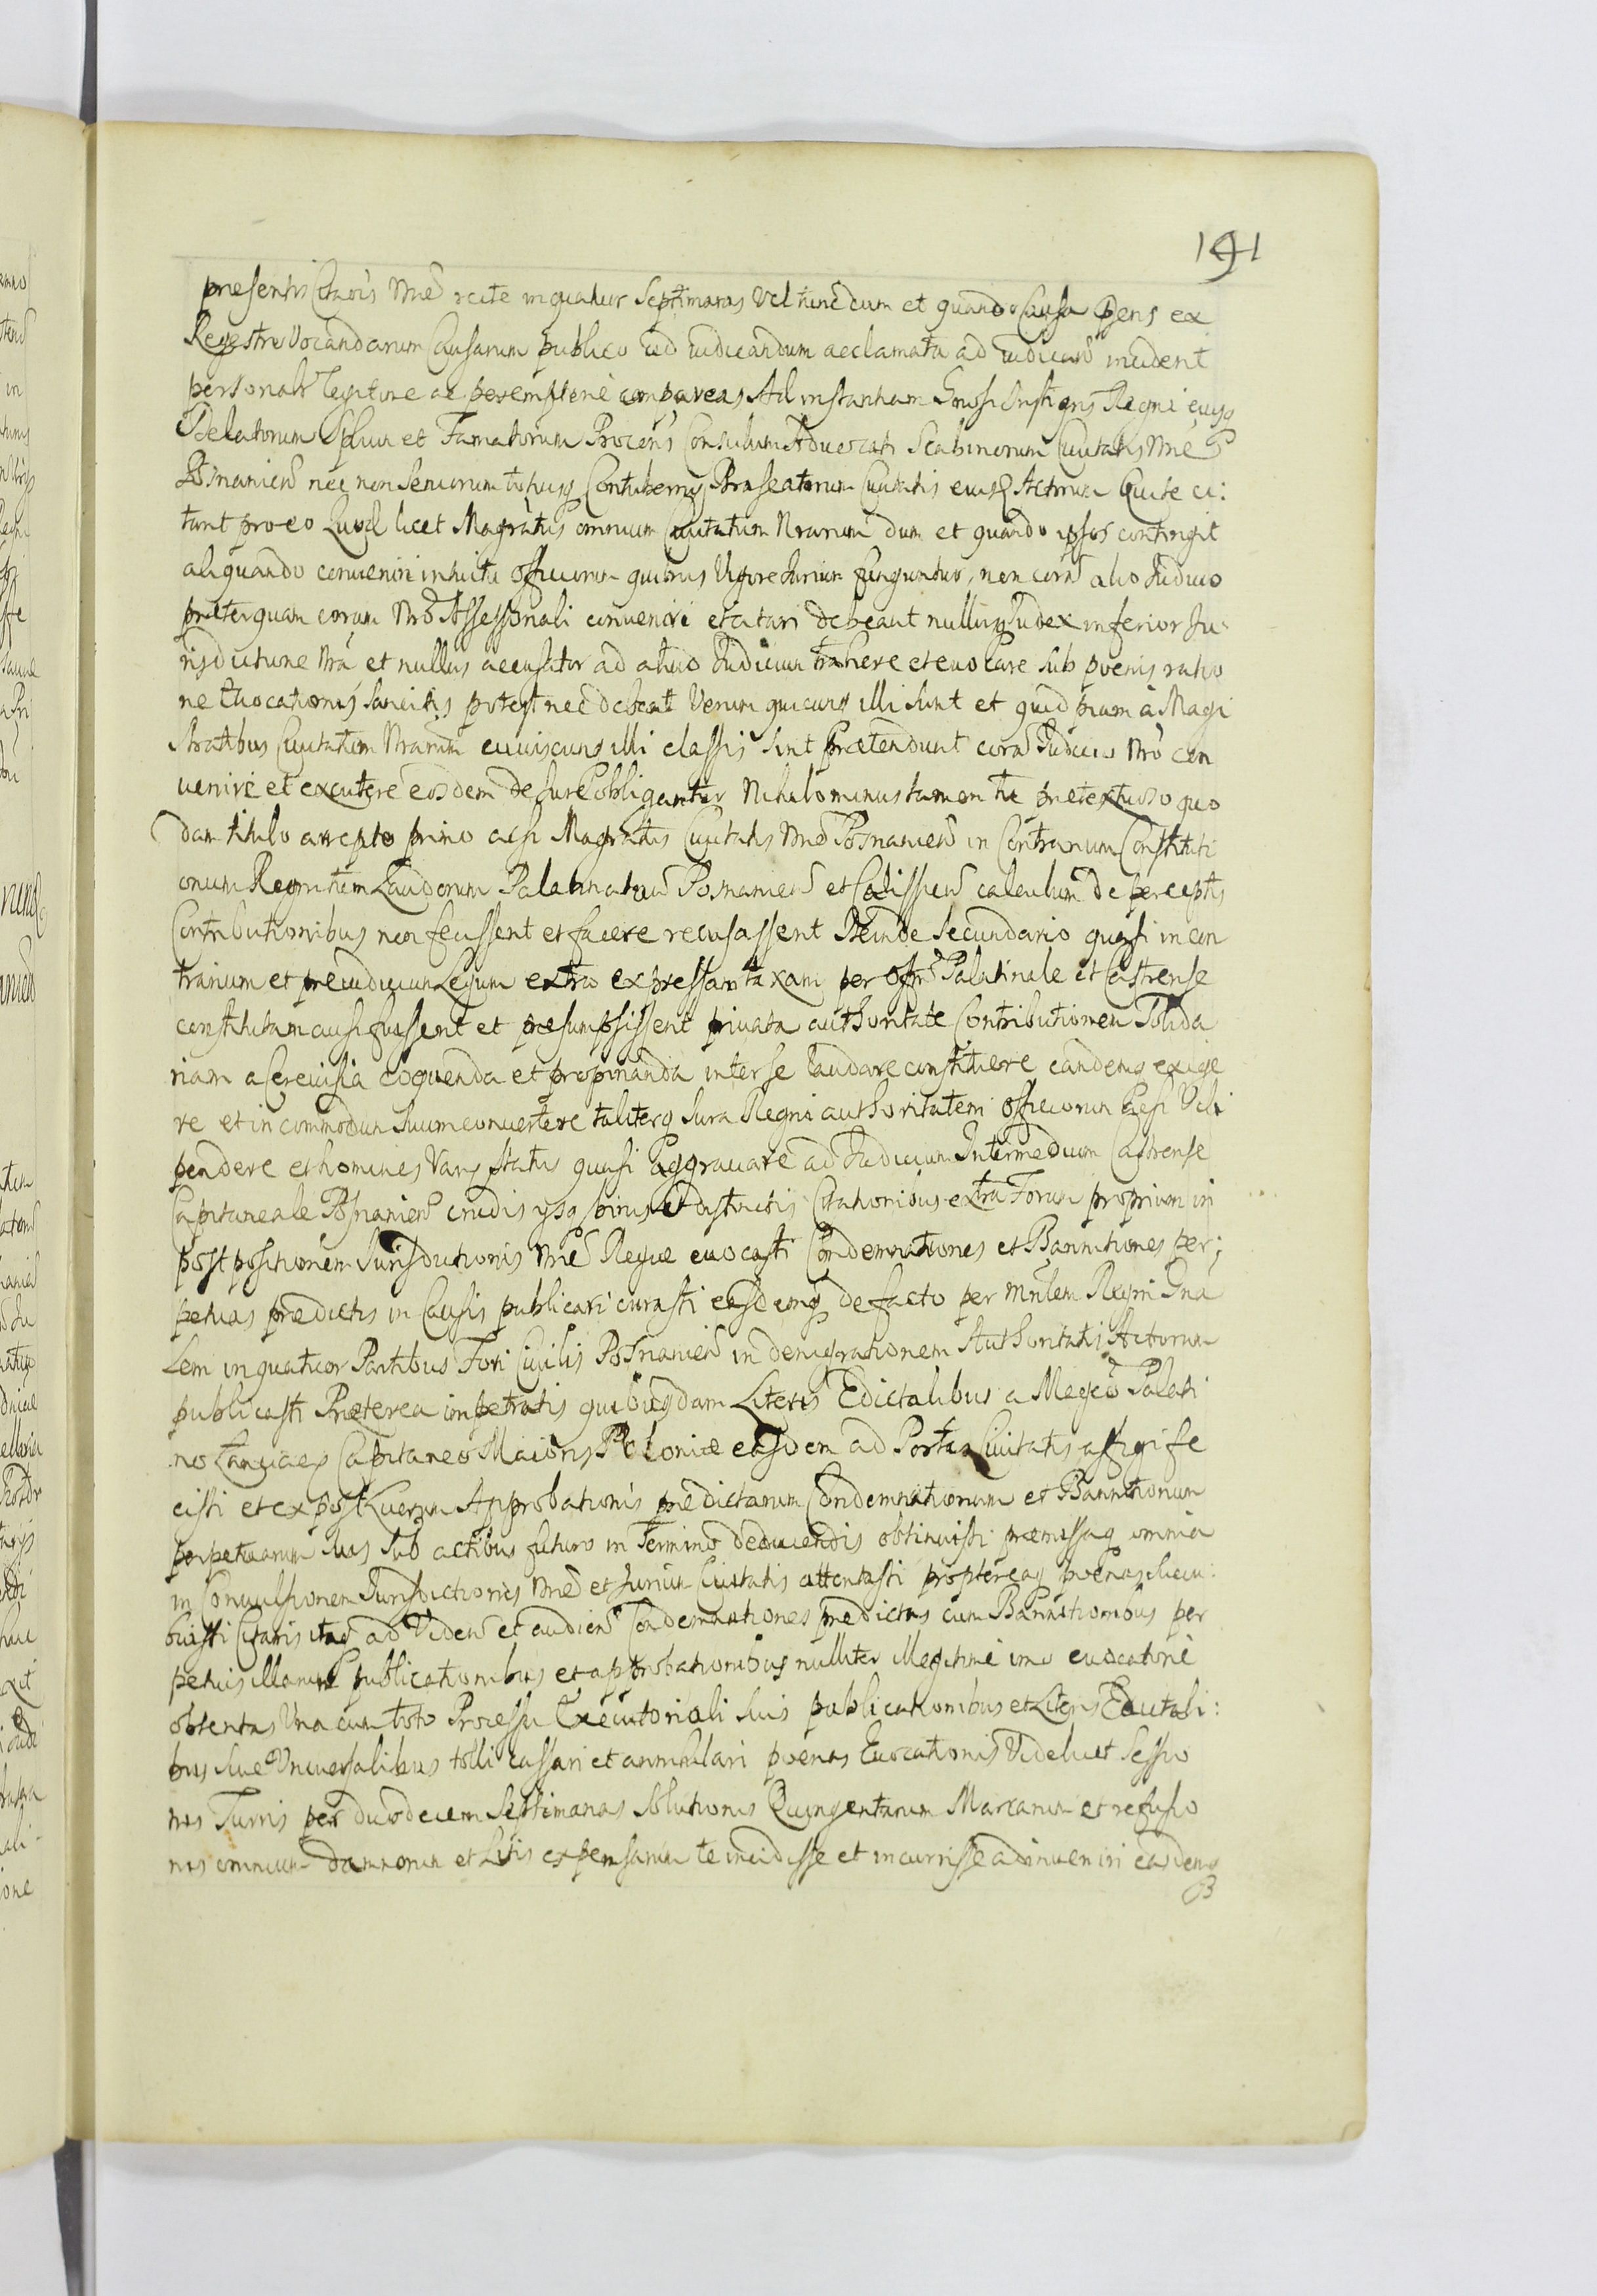 191
presentis Cittaois Nrae rcite in quatuor Septimanas vel tunc dum et quando Causa pens ex
Regestro Vocandarum Causarum publico ad iudicandum acclamata ad iudicand inciderit
personalr legitime ac peremptorie compareas Ad instantiam Gnrosi Instigris Regni eiusq
Delatorum Splium et Famatorum Procons Consulum Advocati Scabinorum Civitatis Nrae
Posnanien nec non Seniorum totiusq Contubernij Braseatorum Civitatis eiusd Actorum Qui te ci:
tant pro eo Quod licet Magratus omnium Civitatum Nrarum dum et quando ipsos contingit
aliquando conveniri intuitu officiorum quibus Vigore Iurium funguntur, non coram alio Iudicio
praeterquam coram Nro Assessoriali conveniri et citari debeant nullusq Iudex inferior Iu:
risdictione Nra et nullus accusator ad aliud Iudicium trahere et evocare sub poenis ratio
ne Evocationis sancitis potest nec debeat Verum quicunq illi sunt et quidpiam à Magi
stratibus Civitatum Nrarum cuiuscunq illi classis sint praetendunt coram Iudicio Nro con
venire et excutere eosdem de Iure obligantur Nihilominus tamen Tu praetextuoso quo
dam titulo arrepto primo acsi Magratus Civitatis Nrae Posnanien in Contrarium Constituti
onum Regni tum Laudorum Palatinatuum Posnanien et Calissien calculum de perceptis
Contributionibus non fecissent et facere recusassent Deinde Secundario quasi in con
trarium et praeiudicium Legum extra expressam taxam per offm Palatinale et Castrense
constitutam ausi fuissent et praesumpsissent privata authoritate Contributionem Solida
riam a Cerevisia coquenda et propinanda inter se laudare constituere eandemq exige
re et in commodum suum convertere taliterq Iura Regni authoritatem officiorum Vili
pendere et homines Varij status quasi aggravare ad Iudicium Intermedium Castrense
Capitaneale Posnanien crudis ysq binis et distinctis Citationibus extra Forum proprium in
postpositionem Iurisdictionis Nrae Regiae evocasti Condemnationes et Bannitiones per:
petuas praedictis in Causis publicari curasti easdemq de facto per Mnlem Regni Gna
lem in quatuor Partibus Fori Civilis Posnanien in denigrationem Authoritatis Actorum
publicasti Praeterea impetratis quibusdam Literis Edictalibus a Magco Palati
no Capitaneo Maioris Poloniae easdem ad Portas Civitatis affigi fe
cisti et ex post Approbationis praedictarum Condemnationum et Bannitionum
perpetuarum suas sub actibus futuro in Termino deducendis obtinuisti praemissaq omnia
in Convulsionem Iurisdictionis Nrae et Iurium Civitatis attentasti proptereaq poenas succu:
buisti Citaris itaq ad Viden et audien Condemnationes praedictas cum Bannitionibus per
petuis illarumq publicationibus et approbationibus nulliter illegitimè imo evocatoriè
obtentas Una cum toto Processu Executoriali suis publicationibus et Literis Edictali:
bus sive Universalibus tolli cassari et annihilari poenas Evocationis Videlicet Sessio
nis Turris per duodecem Septimanas solutionis Quingentarum Marcarum et refusio
nis omnium damnorum et Litis expensarum te incidisse et incurrisse adinveniri easdemq